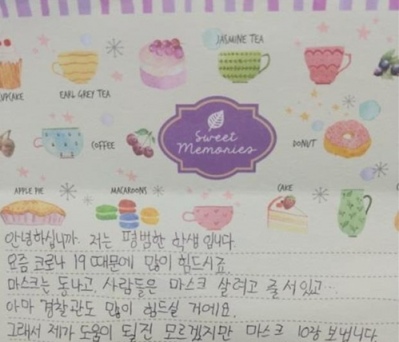 JASMINE TEA
CUPCAKE
EARL GREY TEA
Sweet
Memories
COFFEE
DONUT
APPLE PIE
MACAROONS
CAKE
안녕하십니까. 저는 평범한 학생입니다.
요즘 코로나 19 때문에 많이 힘드시죠
마스크는 동나고 사람들은 마스크 살려고 줄 서있고...
아마 경찰관도 많이 힘드실 거에요.
그래서 제가 도움이 될진 모르겠지만 마스크 10장 보냅니다.